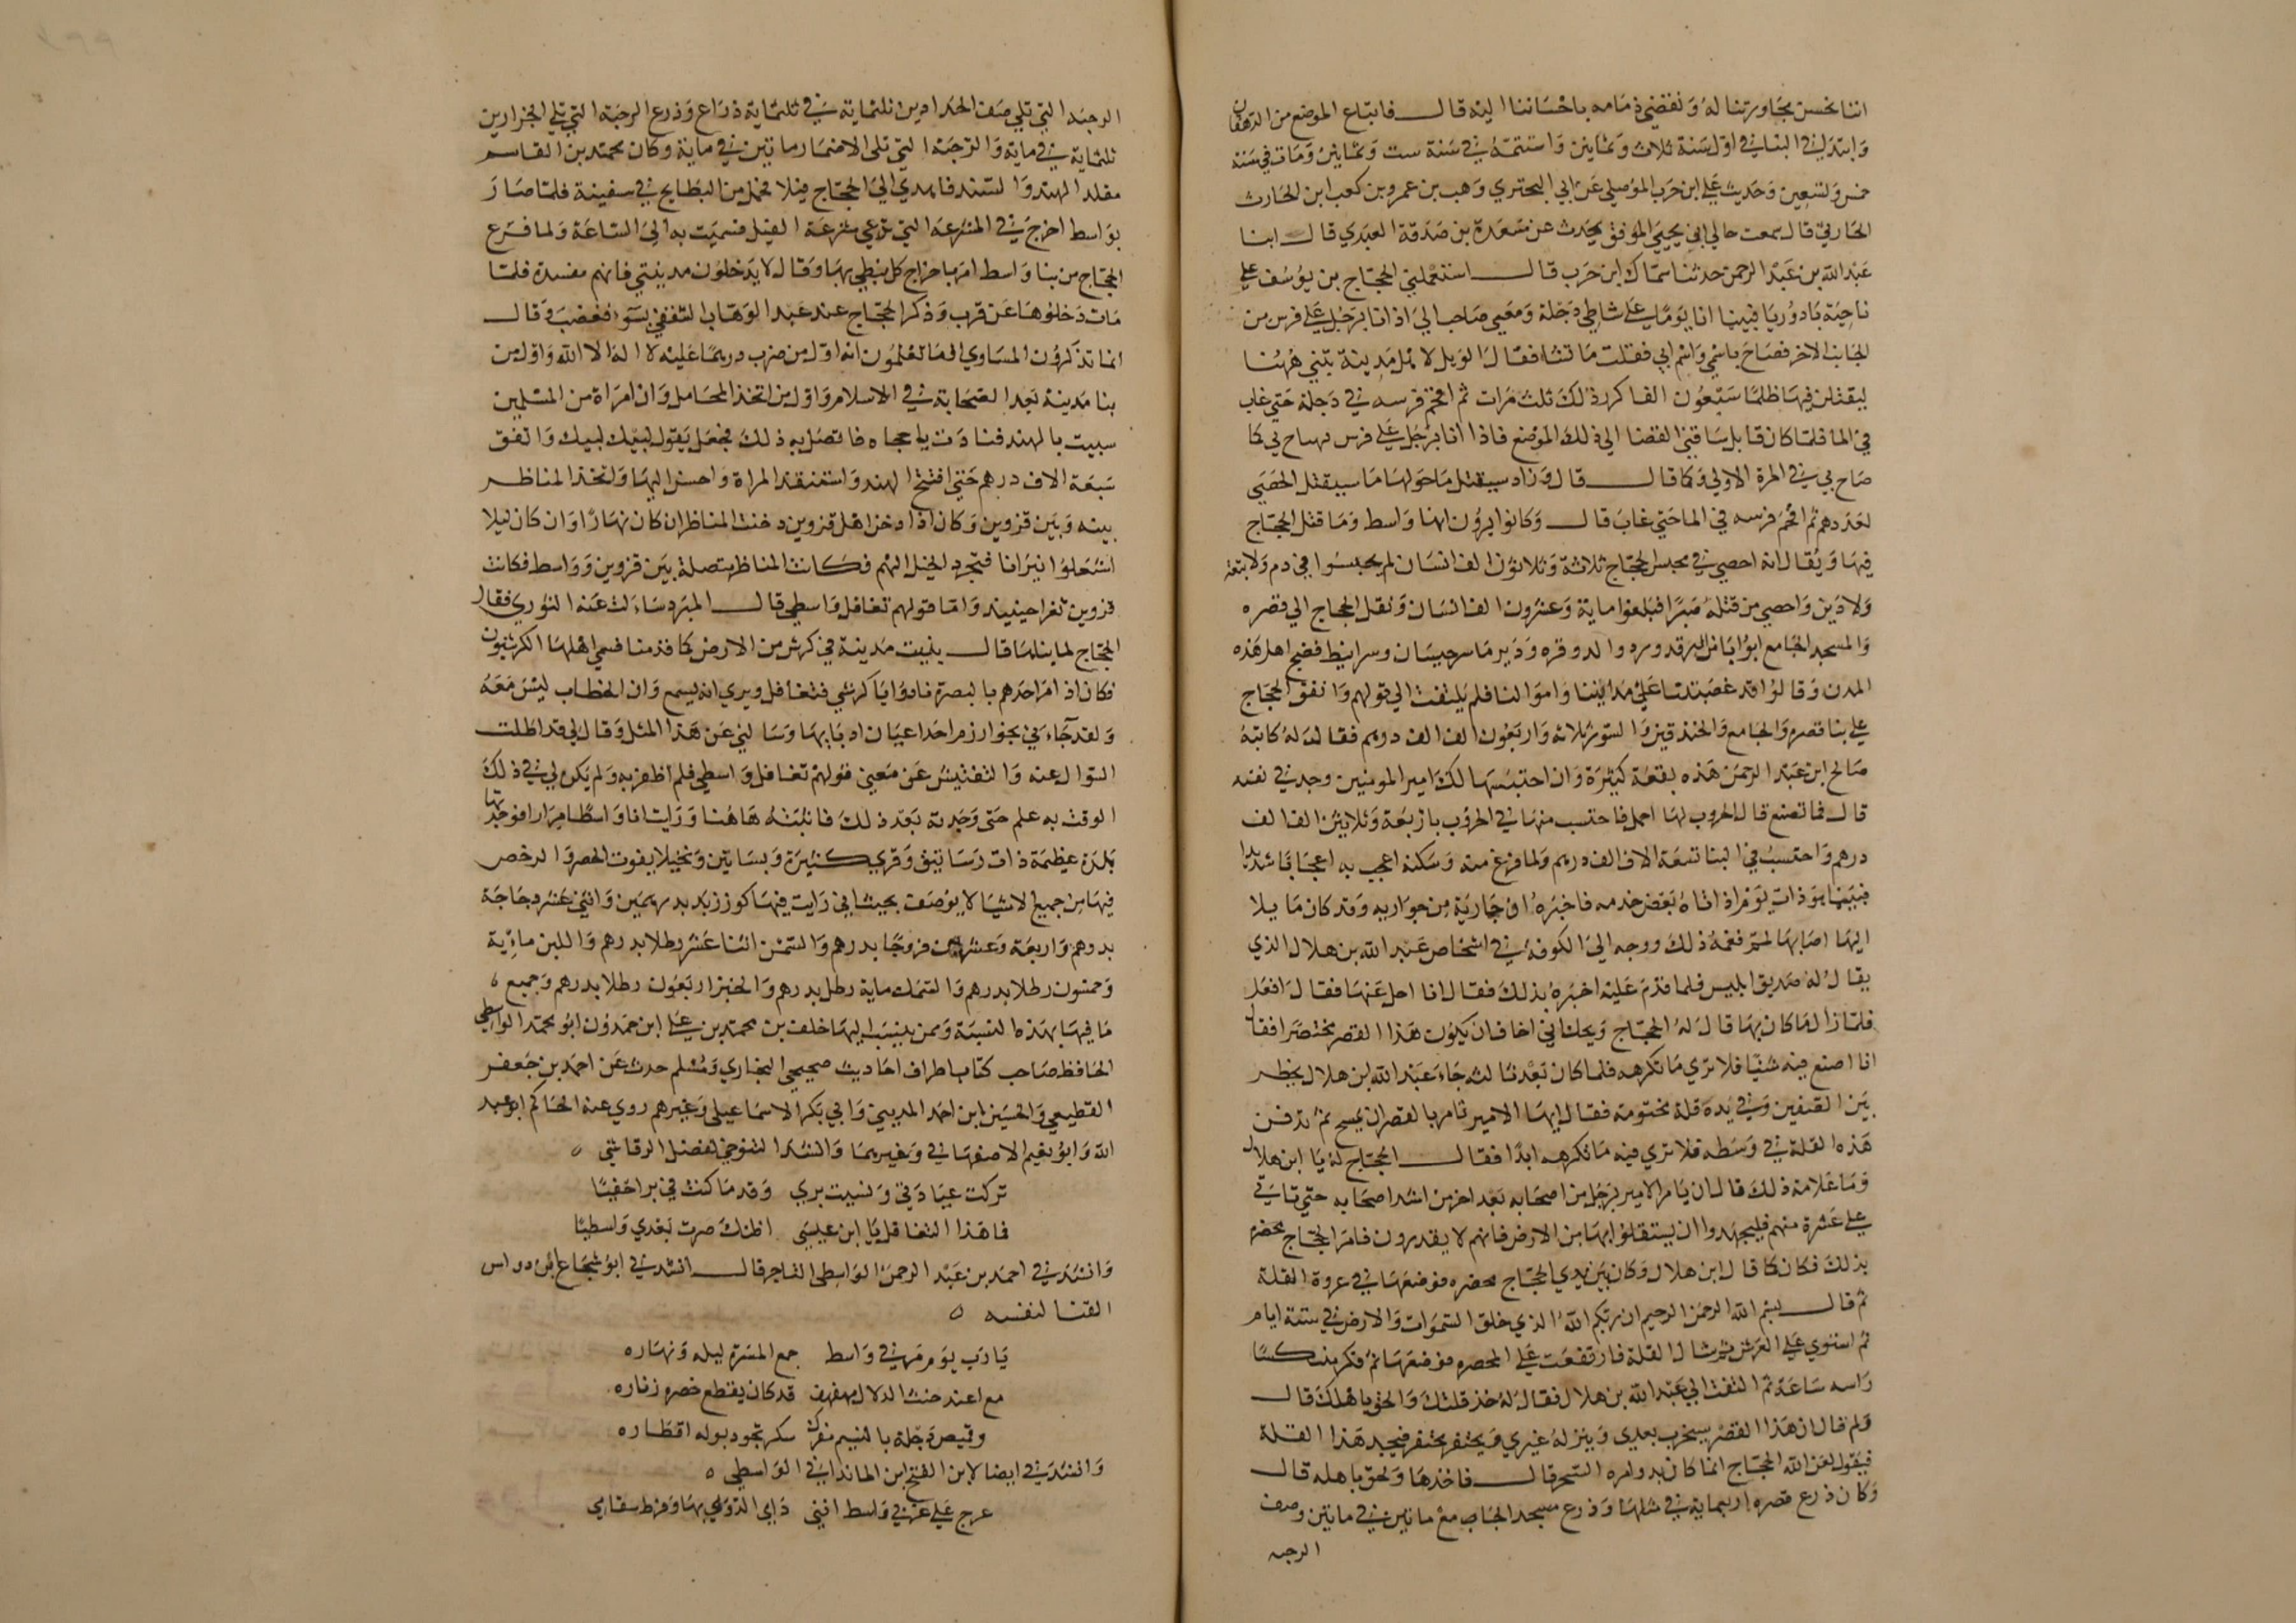 اننا نحسن مجاورتنا له ونقضي ذمامه باحساننا اليه قال فابتاع الموضع من الدهقان
وابتدي في البنا في اول سنة ثلاث وثمانين واستتمه في سنة ست وثمانين ومات في سنة
خمس وتسعين وحديث علي ابن حرب الموصلي عن ابي البحتري وهب بن عمرو بن كعب ابن الحارث
الحارثي قال سمعت خالي ابي يحيي الموفق يحدث عن مسعدة بن صدقة العبدي قال ابنا
عبد الله بن عبد الرحمن حدثنا سماك ابن حرب قال استعملني الحجاج بن يوسف علي
ناحية بادوريا فبينا انا يوما علي شاطي دجلة ومعي صاحب لي اذ انا برجل علي فرس من
الجانب الاخر فصاح باسمي واسم ابي فقلت ما تشا فقال الويل لاهل مدينة تبني ههنا
ليقتلن فيها ظلما سبعون الفا كرر ذلك ثلث مرات ثم اقحم فرسه في دجلة حتي غاب
في الما فلما كان قابل ساقني القضا الي ذلك الموضع فاذا انا برجل علي فرس فصاح بي كما
صاح بي في المرة الاولي وكما قال قال وزاد سيقتل ما حولها ما سيقتل الحصي
لعددهم ثم اقحم فرسه في الما حتي غاب قال وكانوا يرون انها واسط وما قتل الحجاج
فيها ويقال انه احصي في محبس الحجاج ثلاثة وثلاثون الف انسان لم يحبسوا في دم ولا تبعة
ولا دين واحصي من قتله صبرا فبلغوا ماية وعشرون الف انسان ونقل الحجاج الي قصره
والمسجد الجامع ابوابا من الزندورد والدوقره ودير ماسرجيسان وسرابيط فضج اهل هذه
المدن وقالوا قد غصبتنا علي مدايننا واموالنا فلم يلتفت الي قولهم وانفق الحجاج
علي بنا قصره والجامع والخندقين والسور ثلاثه واربعون الف الف درهم فقال له كاتبه
صالح ابن عبد الرحمن هذه نفقة كثيرة وان احتبسها لك امير المومنين وجد في نفسه
قال فما تصنع قال الحروب لها اجمل فاحتسب منها في الحروب باربعة وثلاثين الف الف
درهم واحتسب في البنا تسعة الاف الف درهم ولما فرغ منه وسكنه اعجب به اعجابا شديدا
فبينما هو ذات يوم اذ اتاه بعض خدمه فاخبره ان جارية من جواريه وقد كان مايلا
اليها اصابها لمم فغمه ذلك ووجه الي الكوفة في اشخاص عبد الله بن هلال الذي
يقال له صديق ابليس فلما قدم عليه اخبره بذلك فقال انا احل عنها فقال افعل
فلما زال ما كان بها قال له الحجاج ويحك اني اخاف ان يكون هذا القصر محتضرا فقال
انا اصنع فيه شيا فلا تري ما تكرهه فلما كان بعد ثالثه جاء عبد الله بن هلال يخطر
بين الصفين وفي يده قلة مختومة فقال ايها الامير تامر بالقصر ان يمسح ثم تدفن
هذه القلة في وسطه فلا تري فيه ما تكرهه ابدا فقال الحجاج له يا ابن هلال
وما علامة ذلك قال ان يامر الامير برجل من اصحابه بعد اخر من اشد اصحابه حتي تاتي
علي عشرة منهم فليجهدوا ان يستقلوا بها من الارض فانهم لا يقدرون فامر الحجاج محضره
بذلك فكان كما قال ابن هلال وكان بين يدي الحجاج مخصره فوضعها في عروة القلة
ثم قال بسم الله الرحمن الرحيم ان ربكم الله الذي خلق السموات والارض في ستة ايام
ثم استوي علي العرش ثم شال القلة فارتفعت علي المخصره فوضعها ثم فكر منكسا
راسه ساعة ثم التفت الي عبد الله بن هلال فقال له خذ قلتك والحق باهلك قال
ولم قال ان هذا القصر سيخرب بعدي وينزله غيري ويحتفر محتفر فيجد هذا القلة
فيقول لعن الله الحجاج انما كان بدو امره السحر قال فاخذها ولحق باهله قال
وكان ذرع قصره اربعماية في مثلها وذرع مسجد الجامع مائتين في مائتين وصف
الرحبه
الرحبه التي تلي صف الحدادين ثلثماية في ثلثماية ذراع وذرع الرحبة التي تلي الجزارين
ثلثماية في ماية والرحبة التي تلي الاضمار مايتين في ماية وكان محمد بن القاسم
مقلد الهند والسند فاهدي الي الحجاج فيلا فحمل من البطايح في سفينة فلما صار
بواسط اخرج في المشرعة التي تدعي مشرعة الفيل فسميت به الي الساعة ولما فرغ
الحجاج من بنا واسط امر باخراج كل نبطي بها وقال لا يدخلون مدينتي فانهم مفسدة فلما
مات دخلوها عن قرب وذكر الحجاج عند عبد الوهاب الثقفي بسوء فغضب وقال
انما تذكرون المساوي اما تعلمون انه اول من ضرب درهما عليه لا اله الا الله واول من
بنا مدينة بعد الصحابة في الاسلام واول من اتخذ المحامل وان امراة من المسلمين
سبيت بالهند فنادت يا حجاجاه فاتصل به ذلك فجعل يقول لبيك لبيك وانفق
سبعة الاف درهم حتي افتتح الهند واستنقذ المراة واحسن اليها واتخذ المناظر
بينه وبين قزوين وكان اذا دخن اهل قزوين دخنت المناظر ان كان نهارا وان كان ليلا
اشعلوا نيرانا فتجرد الخيل اليهم فكانت المناظر متصلة بين قزوين وواسط فكانت
قزوين ثغرا حينيذ واما قولهم تغافل واسطي قال المبرد سالت عنه الثوري فقال
الحجاج لما بناها قال بنيت مدينة في كرش من الارض كما قدمنا فسمي اهلها الكرشيون
فكان اذا مر احدهم بالبصرة نادوا يا كرشي فتغافل ويري انه لم يسمع وان الخطاب ليس معه
ولقد جاءني بخوارزم احد اعيان ادبايها وسالني عن هذا المثل وقال لي قد اطلت
السوال عنه والتفتيش عن معني قولهم تغافل واسطي فلم اظفر به ولم يكن لي في ذلك
الوقت به علم حتي وجدته بعد ذلك فاثبته هاهنا ورايت انا واسطا مرارا فوجدتها
بلدة عظيمة ذات رساتيق وقري كثيرة وبساتين ونخيلا يفوت الحصر والرخص
فيها من جميع الاشيا لا يوصف بحيث اني رايت فيها كوز زبد بدرهمين واثني عشر دجاجة
بدرهم واربعة وعشرين فروجا بدرهم والسمن اثنا عشر رطلا بدرهم واللبن ماية
وخمسون رطلا بدرهم والسمك ماية رطل بدرهم والخبز اربعون رطلا بدرهم وجميع
ما فيها بهذه النسبة وممن ينسب اليها خلف بن محمد بن علي ابن حمدون ابو محمد الواسطي
الحافظ صاحب كتاب اطراف احاديث صحيحي البخاري ومسلم حدث عن احمد بن جعفر
القطيعي والحسين ابن احمد المديني وابي بكر الاسماعيلي وغيرهم روي عنه الحاكم ابو عبد
الله وابو نعيم الاصفهاني وغيرهما وانشد التنوخي لفضل الرقاشي ٥
تركت عيادتي ونسيت بري وقد ما كنت في برا حفيا
فما هذا التغافل يا ابن عيسي اظنك صرت بعدي واسطيا
وانشدني احمد بن عبد الرحمن الواسطي التاجر قال انشدني ابو شجاع ابن دواس
القنا لنفسه ٥
يا رب يوم مر في واسط جمع المسرة ليله ونهاره
مع اغيد خنث الدلال مهفهف قد كان يقطع خصره زناره
وقميص دجلة بالنسيم مفرك سكر تجود بوله اقطاره
وانشدني ايضا لابن الفتح ابن الماندايني الواسطي ٥
عرج علي غربي واسط انني دايي الدوي بها وفرط سقامي